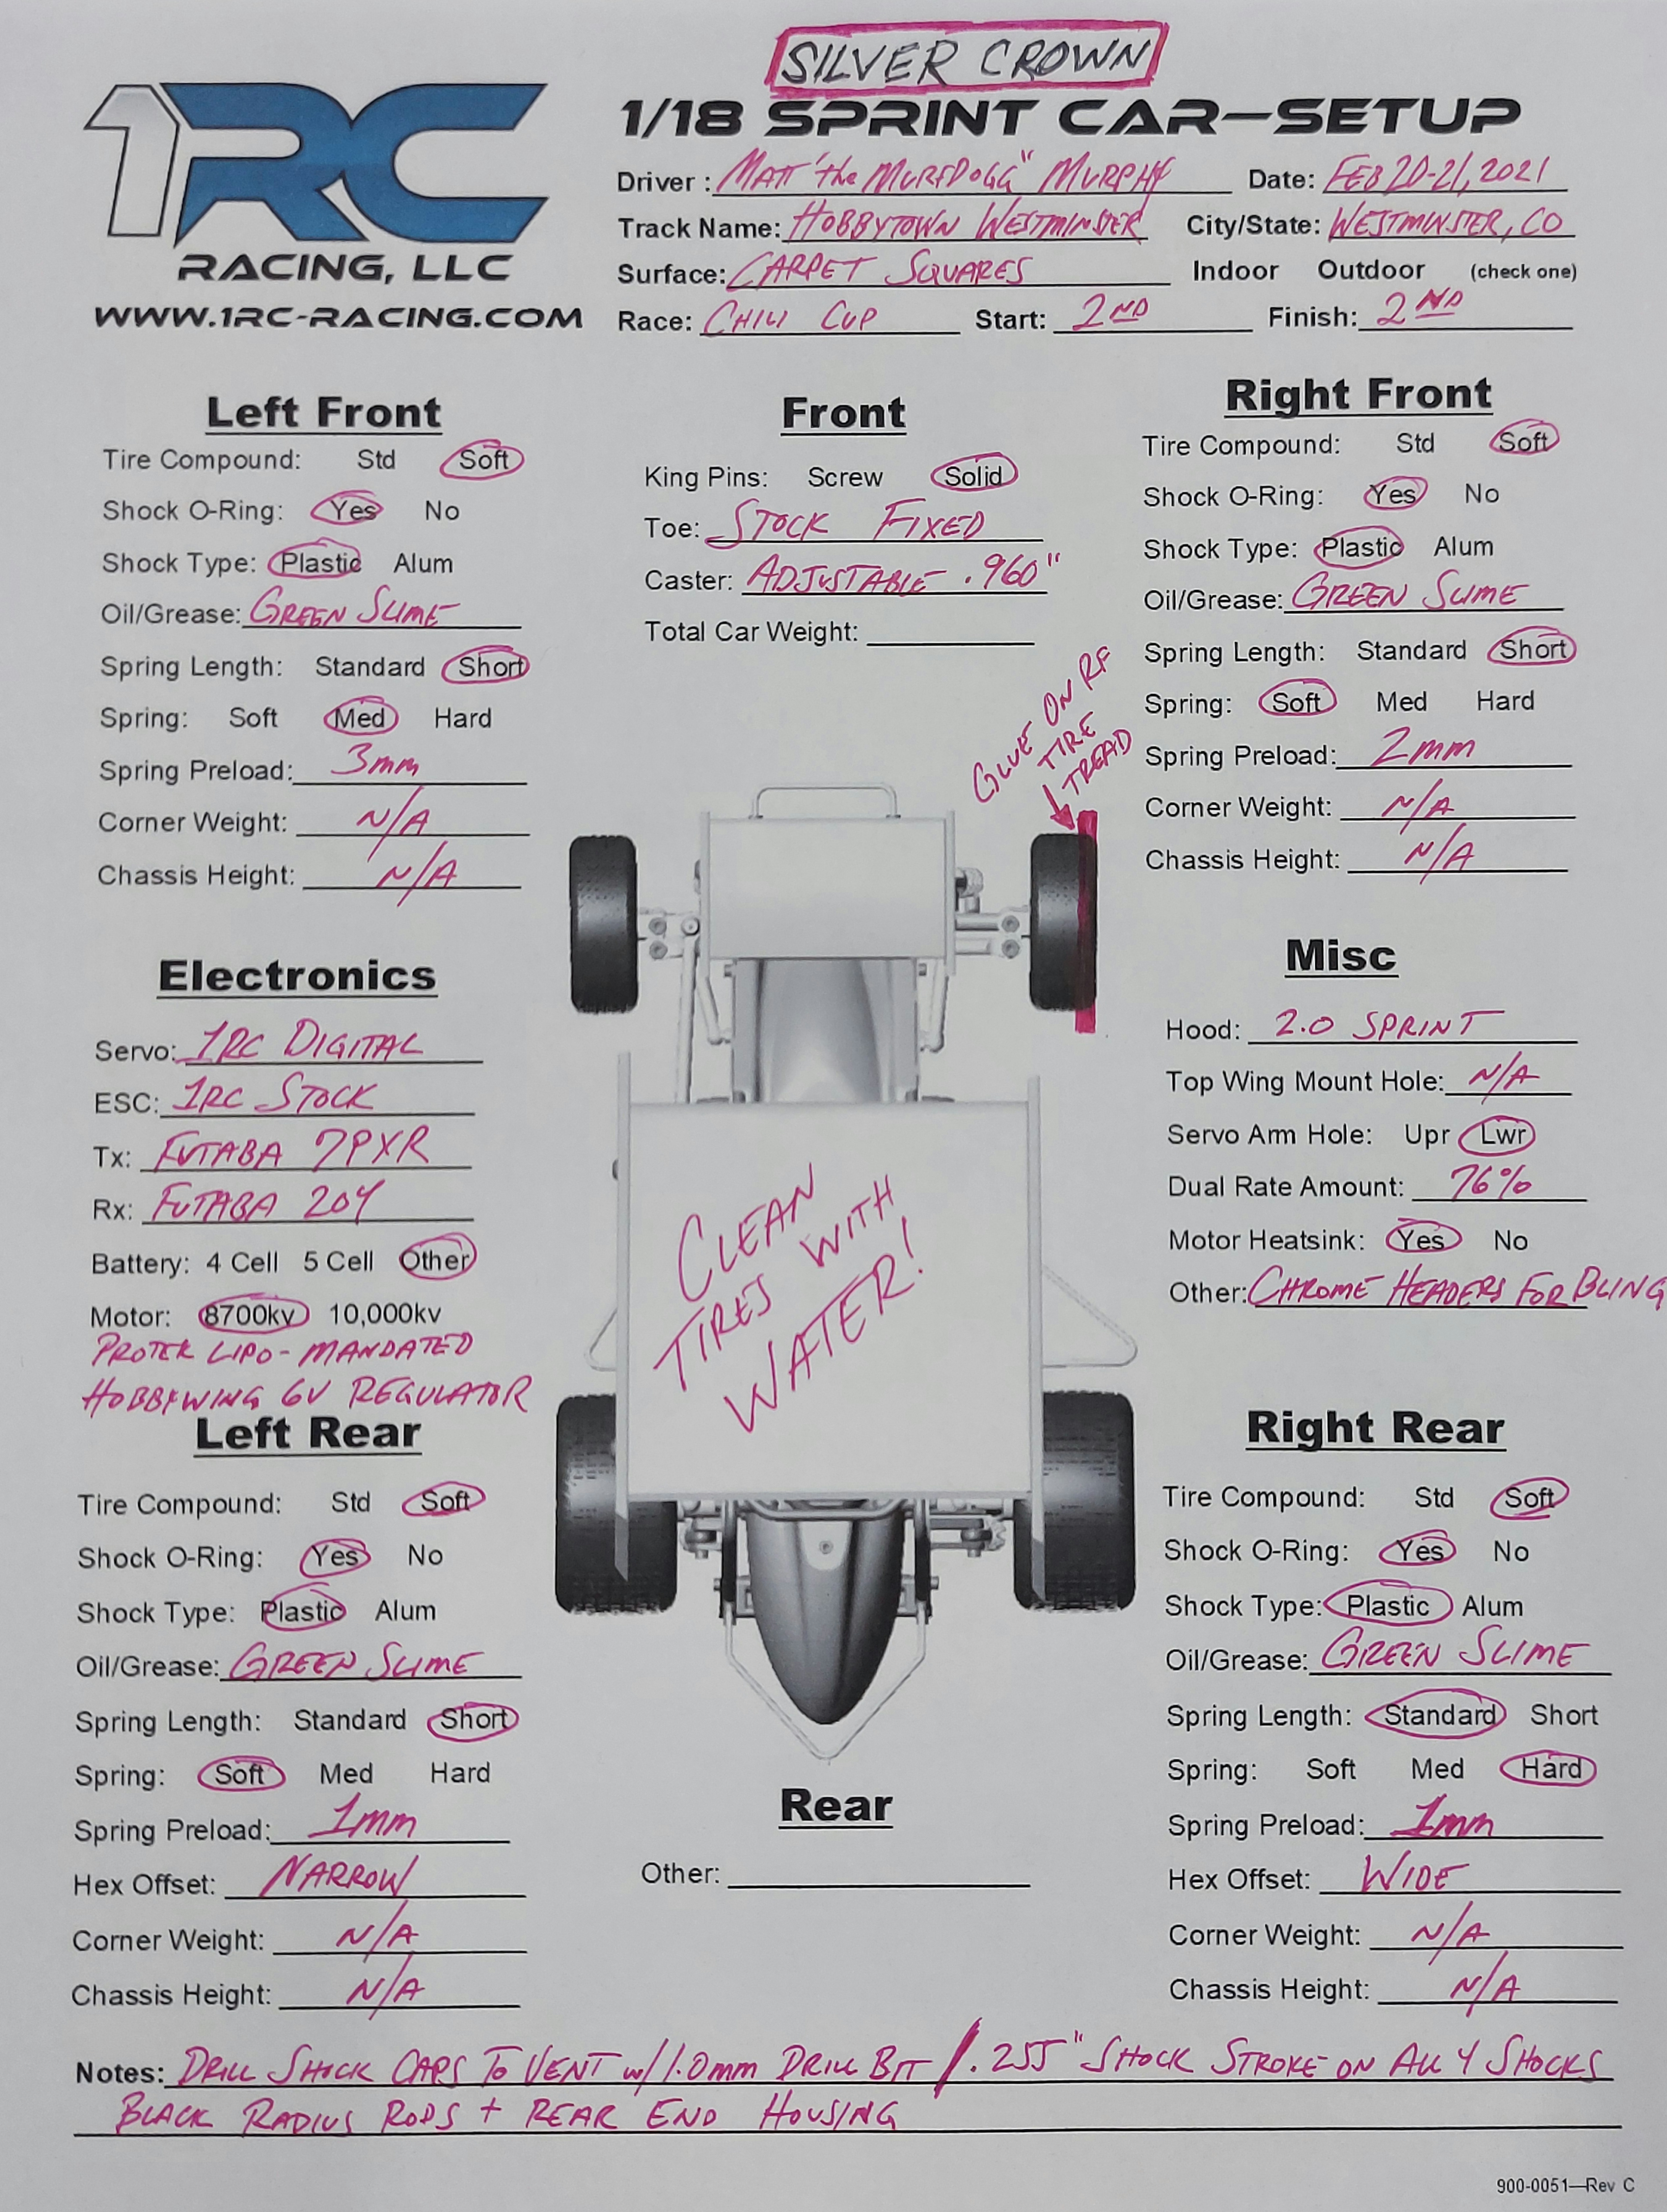 SILVER CROWN
1RC
RACING, LLC
WWW.1RC-RACING.COM
1/18 SPRINT CAR—SETUP
Driver : MATT "the MURFDOGG" MURPHY Date: FEB 20-21, 2021
Track Name: HOBBYTOWN WESTMINSTER City/State: WESTMINSTER, CO
Surface: CARPET SQUARES Indoor Outdoor (check one)
Race: CHILI CUP Start: 2ND Finish: 2ND
Left Front
Tire Compound: Std Soft
Shock O-Ring: Yes No
Shock Type: Plastic Alum
Oil/Grease: GREEN SLIME
Spring Length: Standard Short
Spring: Soft Med Hard
Spring Preload: 3mm
Corner Weight: N/A
Chassis Height: N/A
Front
King Pins: Screw Solid
Toe: STOCK FIXED
Caster: ADJUSTABLE .960"
Total Car Weight:
Right Front
Tire Compound: Std Soft
Shock O-Ring: Yes No
Shock Type: Plastic Alum
Oil/Grease: GREEN SLIME
Spring Length: Standard Short
Spring: Soft Med Hard
Spring Preload: 2mm
Corner Weight: N/A
Chassis Height: N/A
GLUE ON RF
TIRE
TREAD
Electronics
Servo: 1RC DIGITAL
ESC: 1RC STOCK
Tx: FUTABA 7PXR
Rx: FUTABA 204
Battery: 4 Cell 5 Cell Other
Motor: 8700kv 10,000kv
PROTEK LIPO - MANDATED
HOBBYWING 6V REGULATOR
CLEAN
TIRES WITH
WATER!
Misc
Hood: 2.0 SPRINT
Top Wing Mount Hole: N/A
Servo Arm Hole: Upr Lwr
Dual Rate Amount: 76%
Motor Heatsink: Yes No
Other: CHROME HEADERS FOR BLING
Left Rear
Tire Compound: Std Soft
Shock O-Ring: Yes No
Shock Type: Plastic Alum
Oil/Grease: GREEN SLIME
Spring Length: Standard Short
Spring: Soft Med Hard
Spring Preload: 1mm
Hex Offset: NARROW
Corner Weight: N/A
Chassis Height: N/A
Rear
Other:
Right Rear
Tire Compound: Std Soft
Shock O-Ring: Yes No
Shock Type: Plastic Alum
Oil/Grease: GREEN SLIME
Spring Length: Standard Short
Spring: Soft Med Hard
Spring Preload: 1mm
Hex Offset: WIDE
Corner Weight: N/A
Chassis Height: N/A
Notes: DRILL SHOCK CAPS TO VENT w/ 1.0mm DRILL BIT / .255" SHOCK STROKE ON ALL 4 SHOCKS
BLACK RADIUS RODS + REAR END HOUSING
900-0051—Rev C